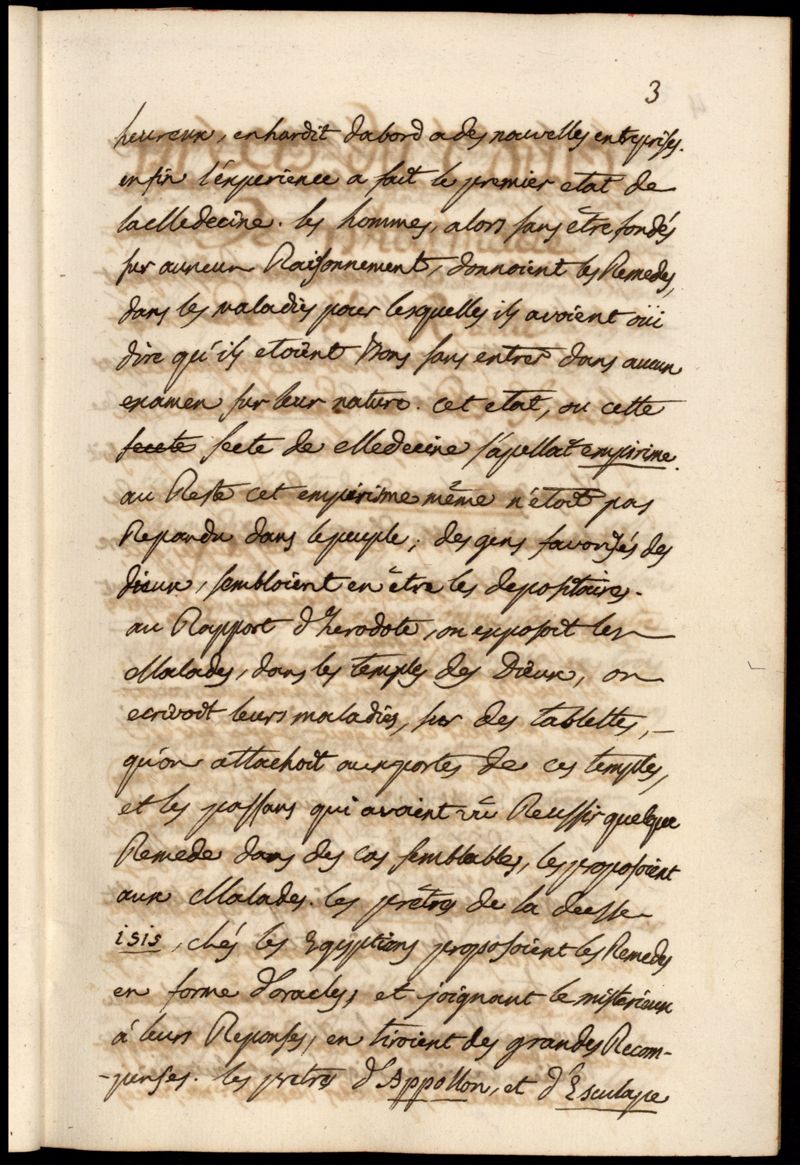 3
heureux, enhardit dabord a des nouvelles entreprises.
enfin l'experience a fait le premier etat de
la Medecine. les hommes, alors sans être fondés
sur aucun Raisonnement, donnoient les Remedes,
dans les maladies pour lesquelles ils avoient oüi
dire qu'ils etoient Bons sans entrer dans aucun
examen sur leur nature. cet etat, ou cette
secte de Medecine s'apellat empirime.
au Reste cet empirisme même n'étoit pas
Repandu dans le peuple; des gens favorisés des
dieux, sembloient en être les depositaires.
au Rapport d'herodote, on exposoit les
Malades, dans les temples des Dieux, on
ecrivoit leurs maladies, sur des tablettes, –
qu'on attachoit aux portes de ces temples,
et les passans qui avoient vû Reussir quelque
Remede dans des cas semblables, les proposoient
aux Malades. les prêtres de la deesse
isis, chés les Egyptiens proposoient les Remedes
en forme d'oracles, et joignant le misterieux
à leurs Reponses, en tiroient des grandes Recom-
-penses. les pretres d'Appollon, et d'Esculape